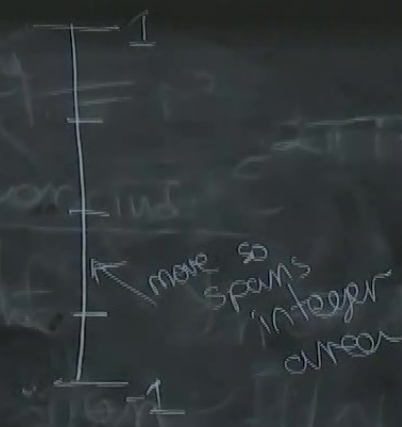 1
move so
spans
integer
area
-1